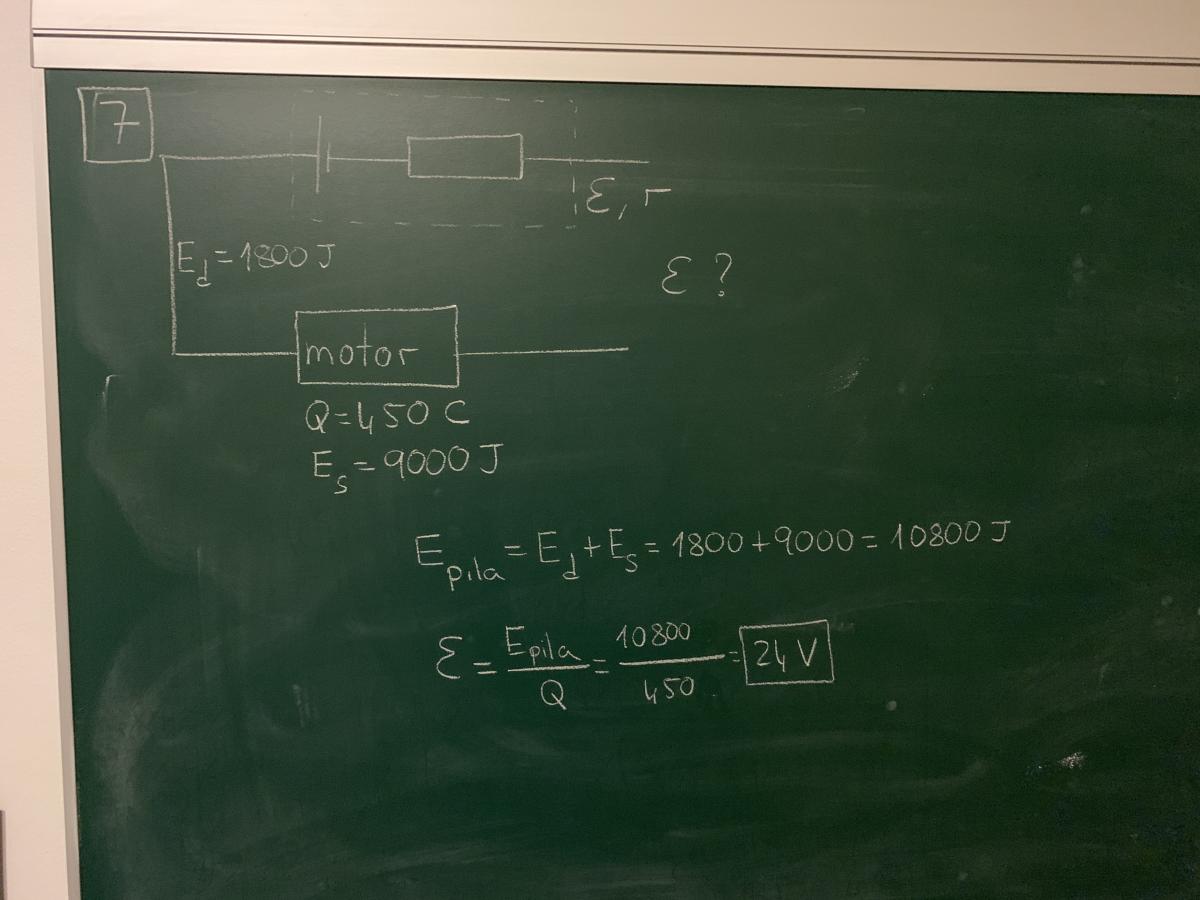 7
ℰ, r
E_d = 1800 J
ℰ ?
motor
Q = 450 C
E_s = 9000 J
E_pila = E_d + E_s = 1800 + 9000 = 10800 J
ℰ = E_pila / Q = 10800 / 450 = 24 V